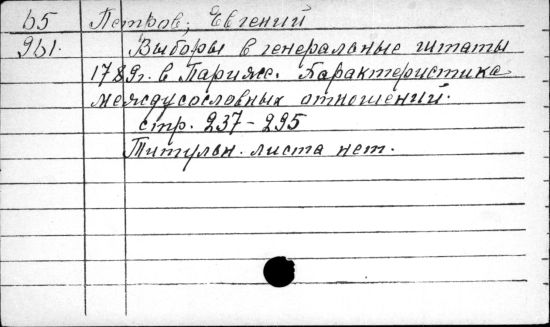 65 Петров, Евгений
961. Выборы в генеральные штаты
1789г. в Париже. Характеристика
междусословных отношений.
стр. 237-295
Титульн. листа нет.